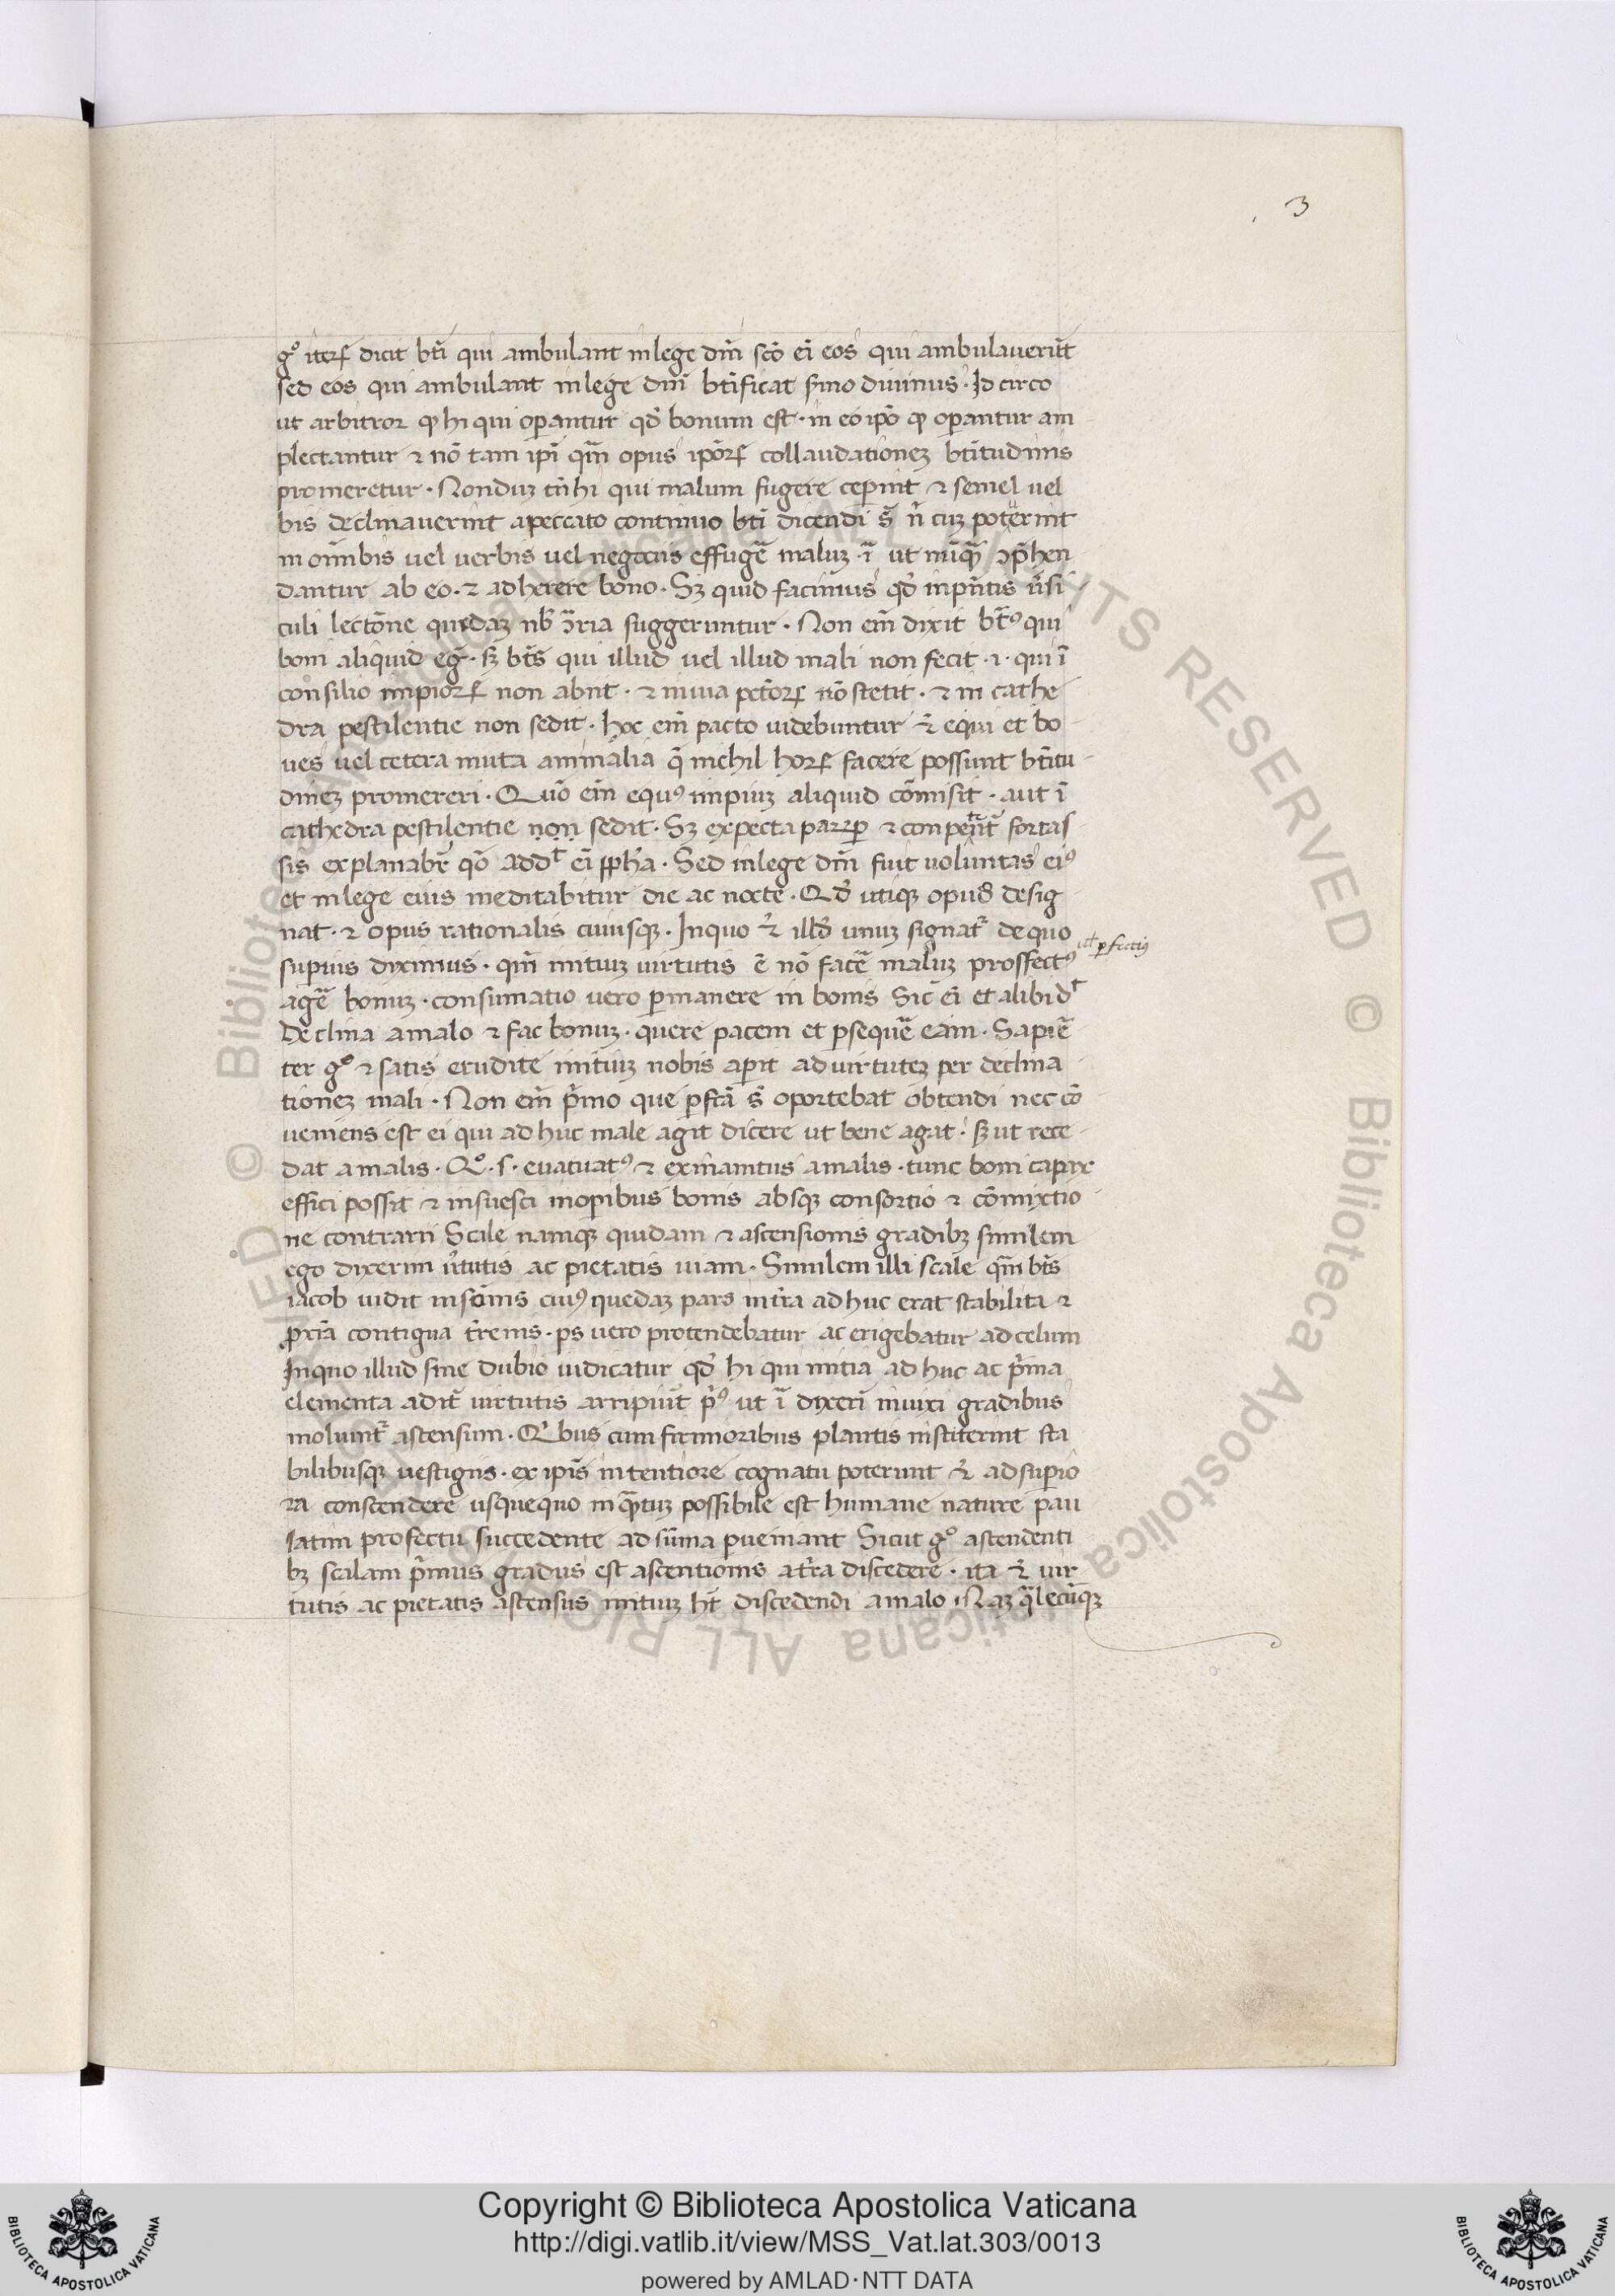 3
g° iterꝝ dicit bt̄i qui ambulant in lege dn̄i scd̄ ei eos qui ambulaverūt
sed eos qui ambulant in lege dn̄i bt̄ificat sermo divinus · Id circo
ut arbitror ꝙ hi qui op̄antur qd̄ bonum est · in eo ip̄o ꝙ op̄antur am
plectantur ⁊ nō tam ip̄i qm̄ opus ip̄oꝝ collaudationeꝫ bt̄itudinis
promeretur · Nonduꝫ tn̄ hi qui malum fugere ceperint ⁊ semel vel
bis declinaverint a peccato continuo bt̄i dicendi s̄ n̄ cuꝫ poterint
in omnibus vel verbis vel negociis effugē̄ maluꝫ · ī ut nūqȝ ꝯp̄hen
dantur ab eo · ⁊ adherere bono · Sꝫ quid facimus qd̄ in pn̄tis v̄si
culi lectōne quedaꝫ nb̄ ꝯ̄ria suggeruntur · Non em̄ dixit bt̄ꝰ qui
boni aliquid eḡ · sꝫ bt̄s qui illud vel illud mali non fecit · i · qui ī
consilio impioꝝ non abiit · ⁊ in via pctōꝝ nō stetit · ⁊ in cathe
dra pestilentie non sedit · hoc em̄ pacto videbuntur ⁊̄ equi et bo
ves vel cetera muta animalia q̄ nichil horꝝ facere possunt bt̄itu
dineꝫ promereri · Quō em̄ equꝰ impiuꝫ aliquid cōmisit · aut ī
cathedra pestilentie non sedit · Sꝫ expecta parꝑ ⁊ con penit̄ fortas
sis explanabr̄ qd̄ addt ei ꝓph̄a · Sed in lege dn̄i fuit voluntas eiꝰ
et in lege eius meditabitur die ac nocte · Qd̄ utiqꝫ opus desig
nat · ⁊ opus rationalis cuiusqꝫ · In quo ⁊̄ illd̄ unuꝫ signat̄ de quo
superius diximus · qm̄ initiuꝫ virtutis ē nō facē̄ maluꝫ proffectꝰ
ul̄ ꝑfectiꝰ
agē̄ bonuꝫ · consumatio vero ꝑmanere in bonis Sic ei et alibi dt
Declina a malo ⁊ fac bonuꝫ · quere pacem et ꝑsequē̄ eam · Sapiē
ter g° ⁊ satis erudite initiuꝫ nobis aperit ad virtuteꝫ per declina
tioneꝫ mali · Non em̄ p̄mo que ꝑfc̄ā s̄ oportebat obtendi nec cō
veniens est ei qui ad huc male agit dicere ut bene agat · sꝫ ut rece
dat a malis · Q° · s · evacuatꝰ ⁊ exinanitus a malis · tunc boni capax
effici possit ⁊ insuesci in opibus bonis absqꝫ consortio ⁊ cōmixtio
ne contrarii Scale namqꝫ quidam ⁊ ascensionis gradibꝫ similem
ego dixerim v̄tutis ac pietatis viam · Similem illi scale qm̄ bt̄s
iacob vidit in sōnis cuiꝰ quedaꝫ pars in t̄ra ad huc erat stabilita ⁊
ꝓxīa contigua t̄renis · ps vero protendebatur ac erigebatur ad celum
In quo illud sine dubio iudicatur qd̄ hi qui initia ad huc ac p̄ma
elementa adit̄ virtutis arripiūt p̄ꝰ ut ī dixeri inuixi gradibus
moliunt̄ ascensum · Qibus cum firmioribus plantis institerint sta
bilibusqꝫ vestigiis · ex ip̄is intentiore cognatu poterunt ⁊̄ ad superio
ra conscendere usquequo in qȝtuꝫ possibile est humane nature pau
latim profectu succedente ad sūma perveniant Sicut g° ascendenti
bꝫ scalam p̄mus gradus est ascentionis a t̄ra discedere · ita ⁊̄ vir
tutis ac pietatis ascensus initiuꝫ ht̄ discedendi a malo · Naꝫ qlecūqꝫ
Copyright © Biblioteca Apostolica Vaticana
http://digi.vatlib.it/view/MSS_Vat.lat.303/0013
powered by AMLAD · NTT DATA
BIBLIOTECA APOSTOLICA VATICANA
BIBLIOTECA APOSTOLICA VATICANA